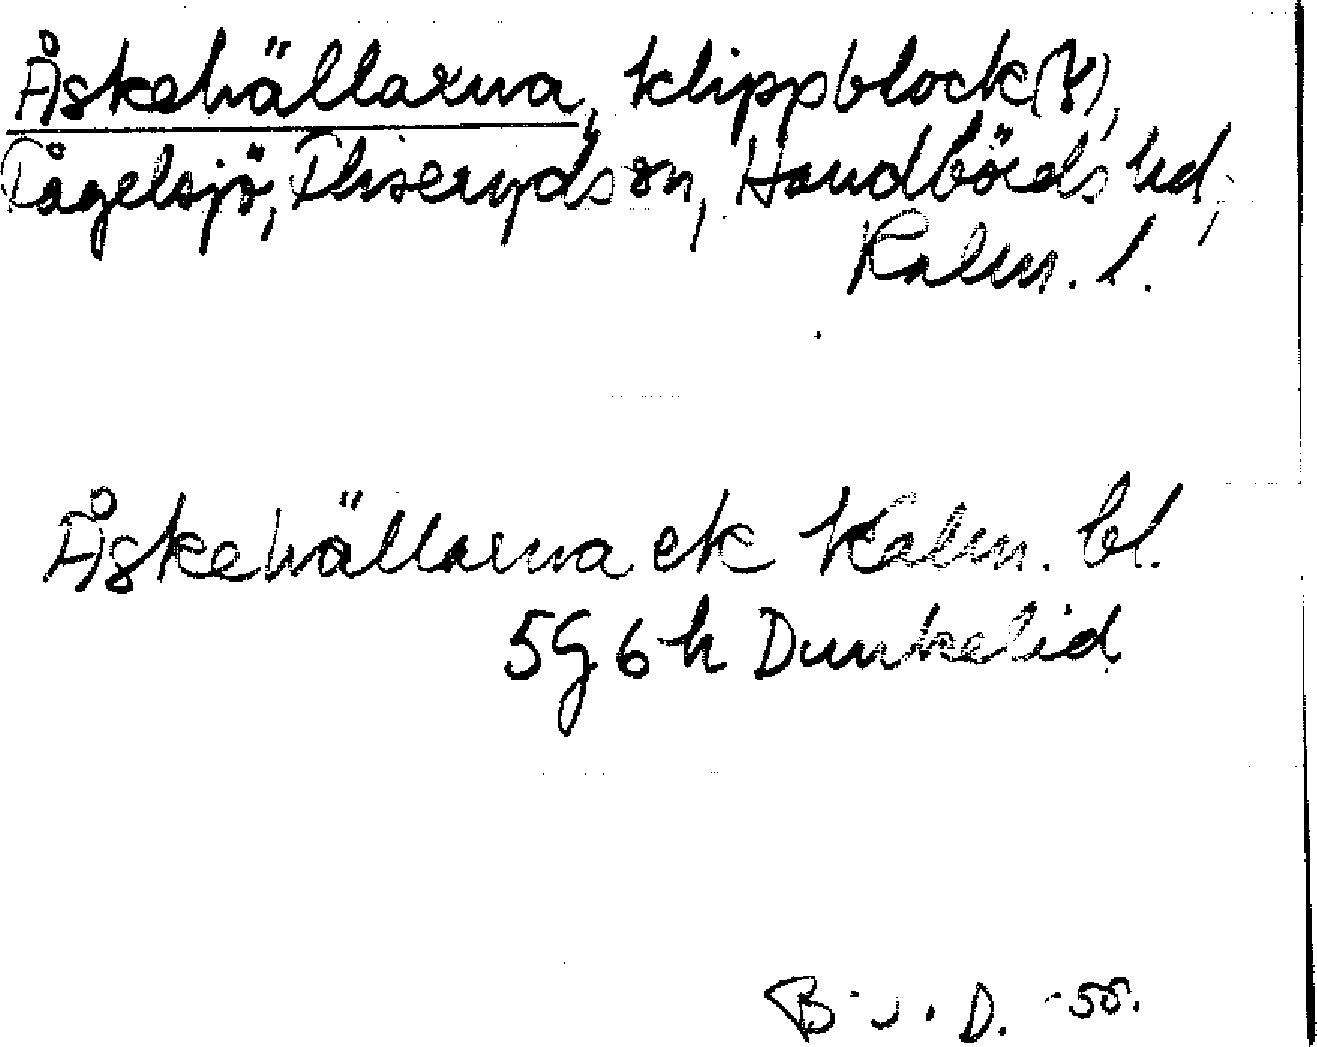 Åskehällarna, klippblock(?),
Fågelsjö, Fliseryds sn, Handbörds hd,
Kalm. l.
Åskehällarna ek Kalm. bl.
5G 6h Dunkelid
B. v. D. -55.